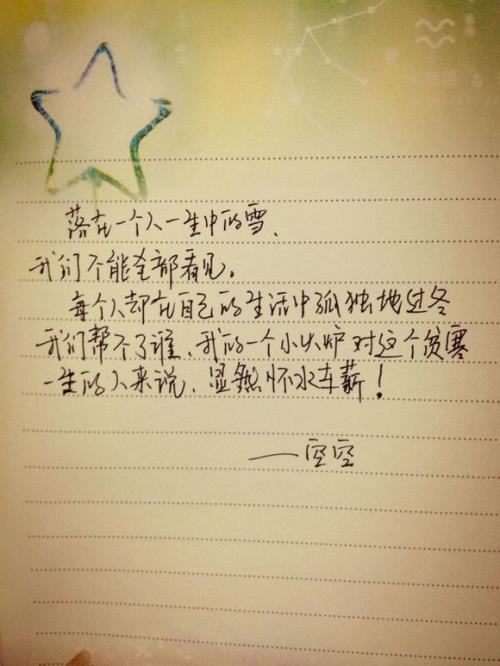 落在一个人一生中的雪、
我们不能全部看见。
每个人都在自己的生活中孤独地过冬
我们帮不了谁、我的一个小火炉对这个贫寒
一生的人来说、显然怀水车薪！
——空空